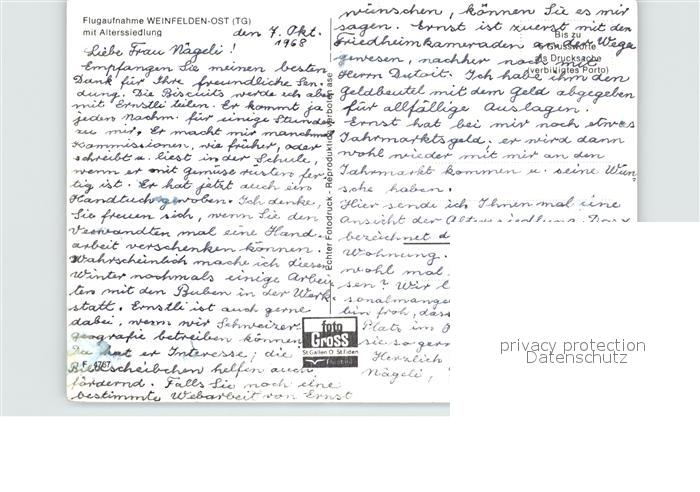 Flugaufnahme WEINFELDEN-OST (TG)
mit Alterssiedlung
den 7. Okt.
1968
Liebe Frau Nägeli!
Empfangen Sie meinen besten
Dank für Ihre freundliche Sen-
dung. Die Biscuits werde ich aber
mit Ernstli teilen. Er kommt ja
jeden Nachm. für einige Stunden
zu mir. Er macht mir manchmal
Kommissionen, wie früher, oder
schreibt u. liest in der Schule,
wenn er mit Gemüse rüsten fer-
tig ist. Er hat jetzt auch ein
Handtuch gewoben. Ich denke,
Sie freuen sich, wenn Sie den
Verwandten mal eine Hand-
arbeit verschenken können.
Wahrscheinlich mache ich diesen
Winter nochmals einige Arbei-
ten mit den Buben in der Werk-
statt. Ernstli ist auch gerne
dabei, wenn wir Schweizer-
geografie betreiben können.
Da hat er Interesse; die
helfen auch
fördernd. Falls Sie noch eine
bestimmte Webarbeit von Ernst
F 4767
Echter Fotodruck - Reproduktion verboten
foto
Gross
St. Gallen O St. Fiden
wünschen, können Sie es mir
sagen. Ernst ist zuerst mit den
Friedheimkameraden an der Wega
gewesen, nachher noch mit
Herrn Dutoit. Ich habe ihm den
Geldbeutel mit dem Geld abgegeben
für allfällige Auslagen.
Ernst hat bei mir noch etwas
Jahrmarktsgeld. er wird dann
wohl wieder mit mir an den
Jahrmarkt kommen u. seine Wün-
sche haben.
Hier sende ich Ihnen mal eine
Ansicht der Alterssiedlung. Das x
bezeichnet d
Wohnung.
wohl mal
sen? Wir l
sonalmange
bin froh, dass
Platz im
sie so gern
Herzlich
Nägeli,
Bis zu
5 Grussworte
als Drucksache
(verbilligtes Porto)
privacy protection
Datenschutz